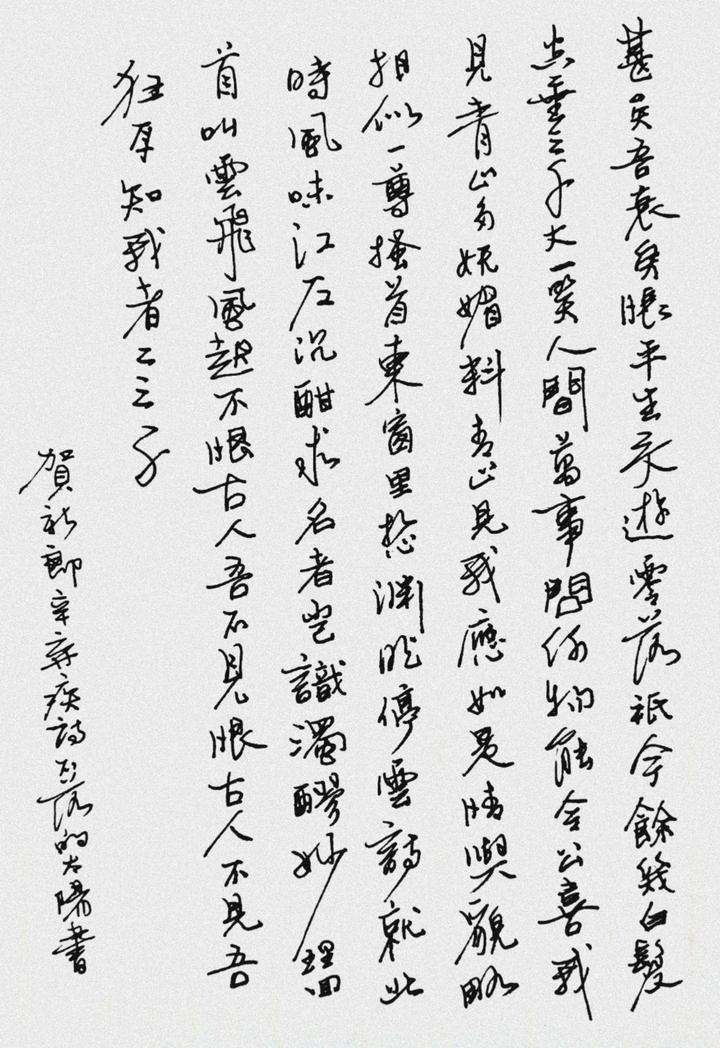 甚矣吾衰矣悵平生交遊零落祇今餘幾白髮
空垂三千丈一笑人間萬事問何物能令公喜我
見青山多妩媚料青山見我應如是情與貌略
相似一尊搔首東窗里想淵明停雲詩就此
時風味江左沉酣求名者豈識濁醪妙理回
首叫雲飛風起不恨古人吾不見恨古人不見吾
狂耳知我者二三子
賀新郎辛棄疾詩 不落的太陽書